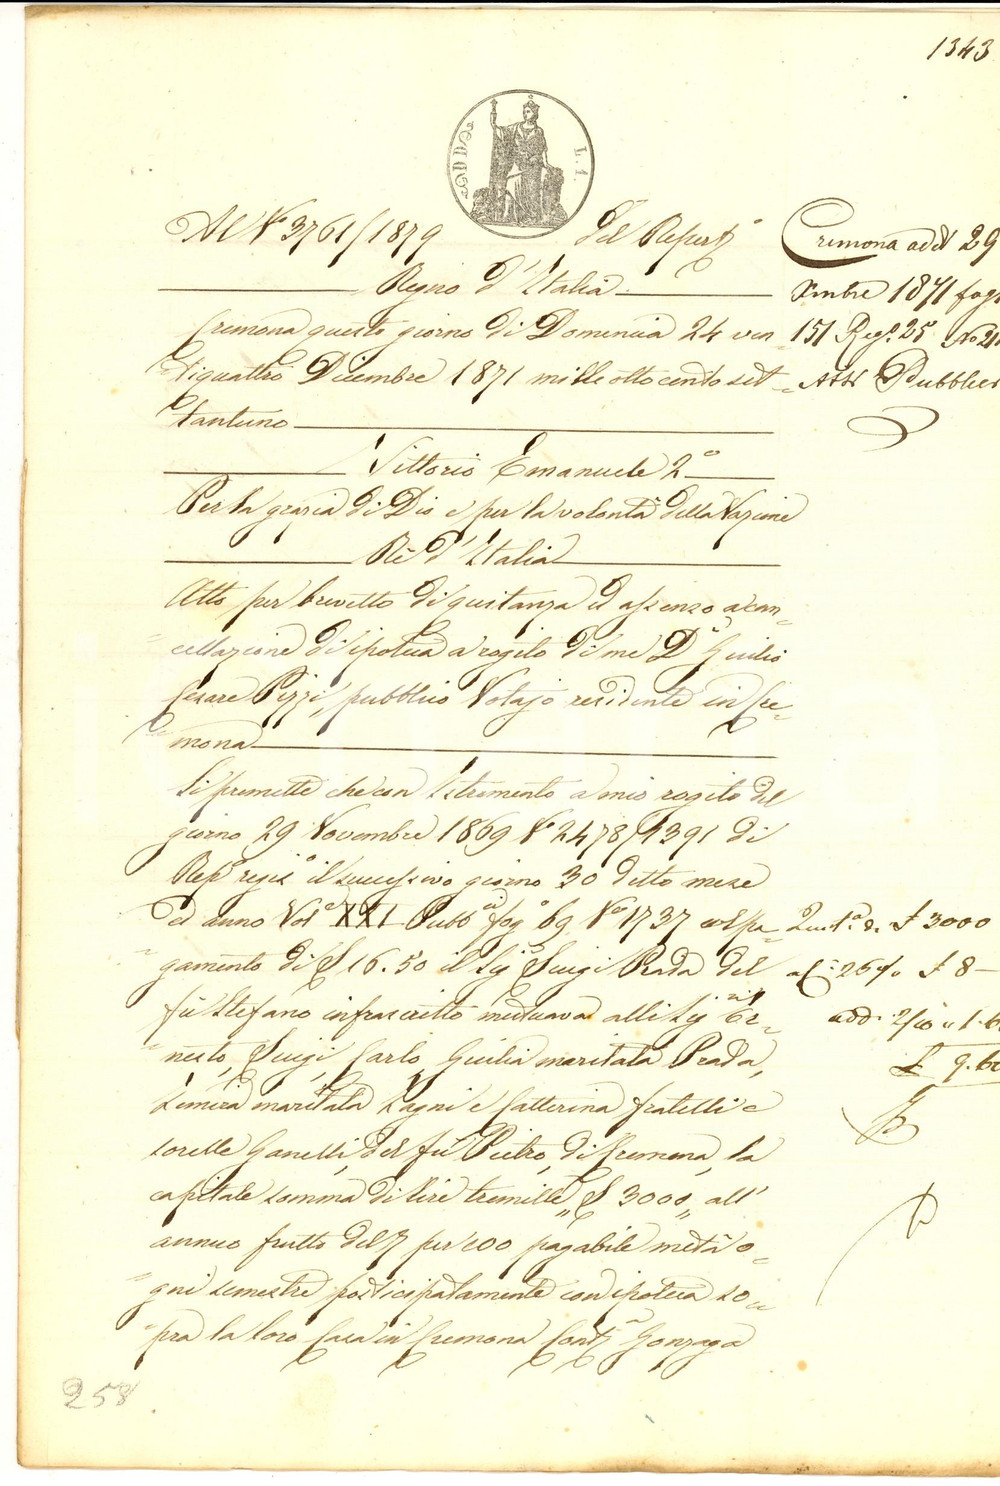 1343
L. 1.
Al N° 3761/1879 del Repert°
Regno d'Italia
Cremona questo giorno di Domenica 24 ven-
tiquattro Dicembre 1871 mille ottocento set-
tantuno
Vittorio Emanuele 2°
Per la grazia di Dio e per la volontà della Nazione
Rè d'Italia
Atto per brevetto di quitanza ed assenso a can-
cellazione di ipoteca a rogito di me Dr Giulio
Cesare Pizzi, pubblico Notajo residente in Cre-
mona
Si premette che con Istromento a mio rogito del
giorno 29 Novembre 1869 N° 2478/4391 di
Rep° regis° il successivo giorno 30 detto mese
ed anno Vol° XXI Pubbci fog° 69 N° 1737 col pa-
gamento di £ 16.50 il Sig Luigi Prada del
fù Stefano infrascritto mutuava alli Sigri Er-
nesto, Luigi, Carlo, Giulia maritata Prada,
Zemira maritata Zagni e Catterina fratelli e
sorelle Ganelli, del fù Pietro, di Cremona, la
capitale somma di lire tremille „ £ 3000 „ all'
annuo frutto del 7 per 100 pagabile metà o-
gni semestre posticipatamente con ipoteca so-
pra la loro Casa in Cremona Contra Gonzaga
Cremona addì 29
Xmbre 1871 fog°
151 Reg° 25 N° 21
Atti Pubblici
Quit.a d. £ 3000
£ 8 –
add. 2/10 „ 1.60
£ 9.60
258